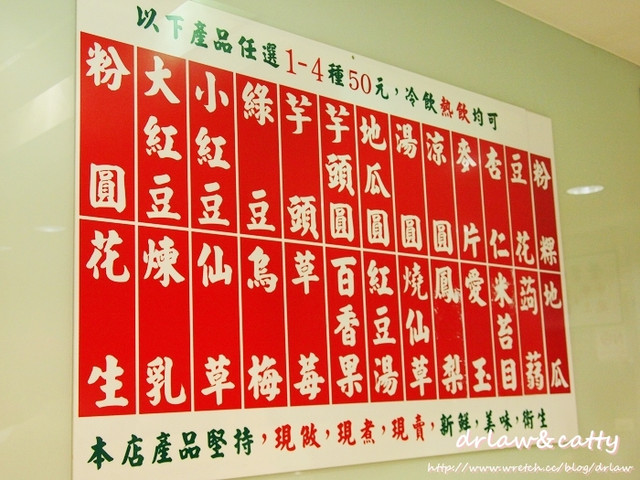 以下產品任選1-4種50元，冷飲熱飲均可
粉圓
大紅豆
小紅豆
綠豆
芋頭
芋頭圓
地瓜圓
湯圓
涼圓
麥片
杏仁
豆花
粉粿
花生
煉乳
仙草
烏梅
草莓
百香果
紅豆湯
燒仙草
鳳梨
愛玉
米苔目
蒟蒻
地瓜
本店產品堅持，現做，現煮，現賣，新鮮，美味，衛生
drlaw&catty
http://www.wretch.cc/blog/drlaw